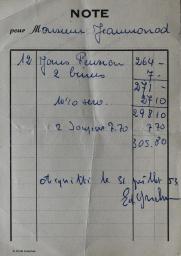 NOTE
pour Monsieur Jeanmonod
12 Jours Pension 264 -
2 bains 7. -
271 -
10% serv. 27 10
298 10
2 7.70 7 70
305.80
acquitté le 31 juillet 53